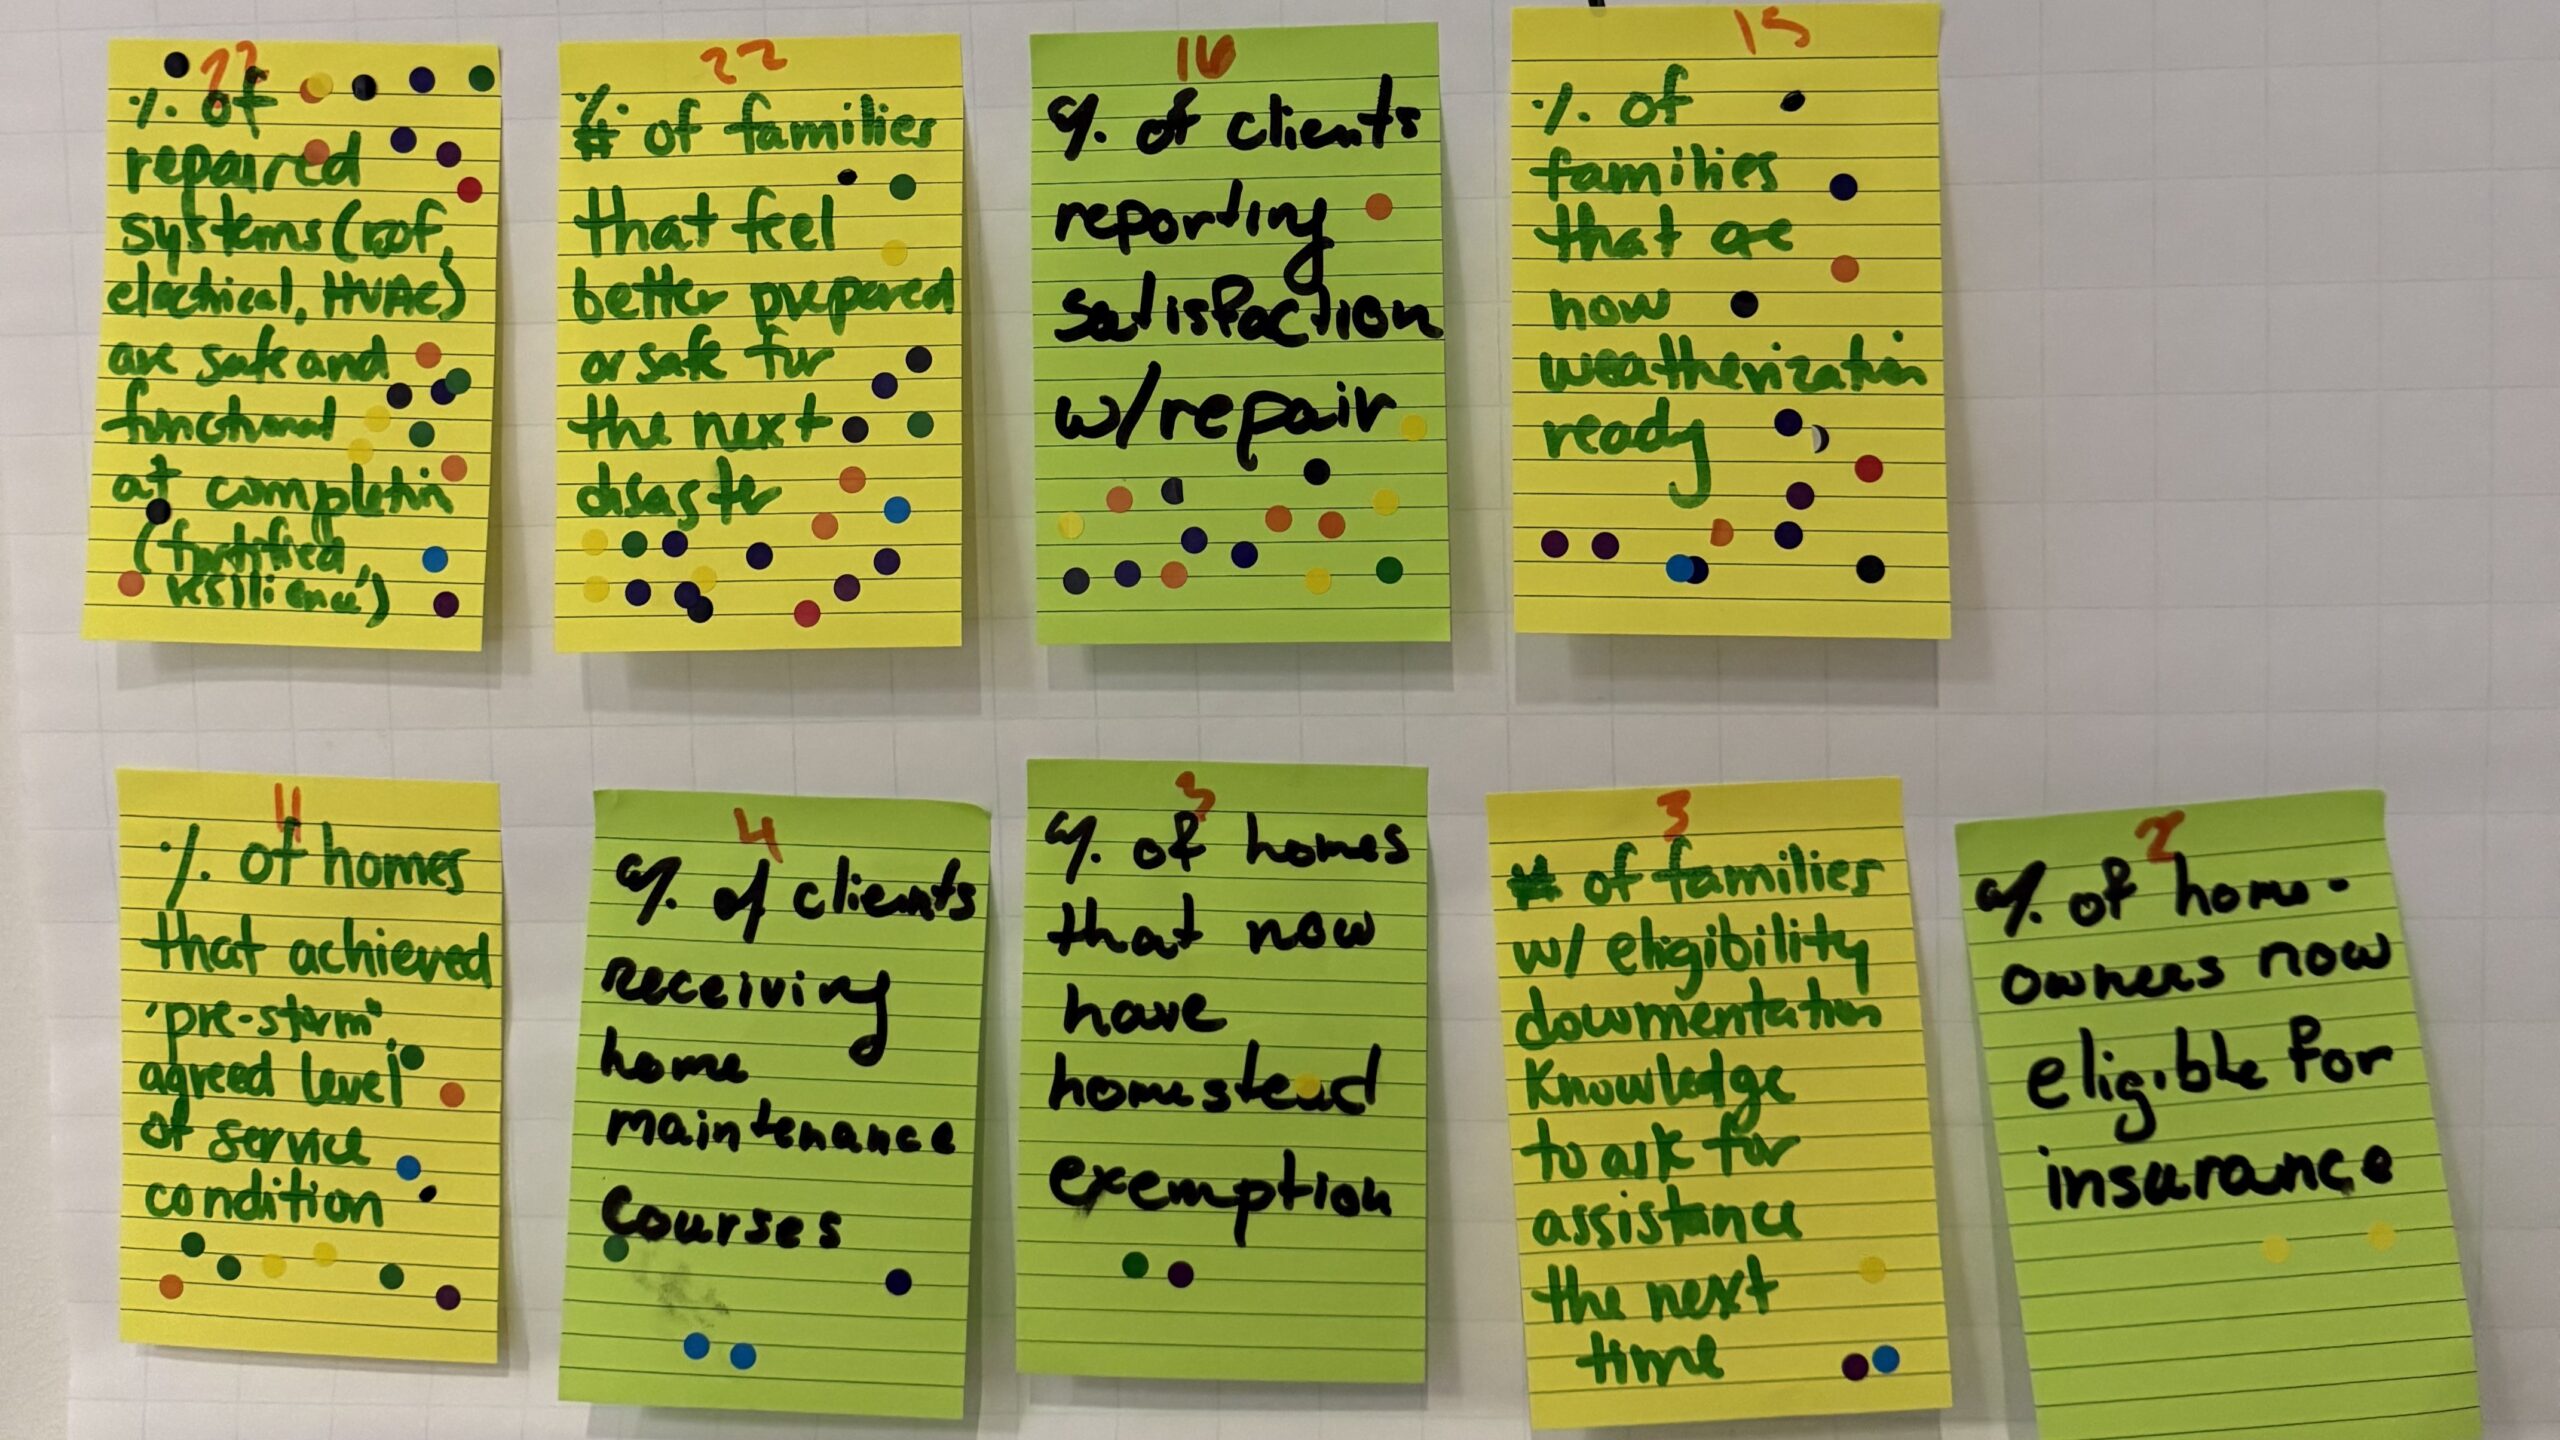 22
% of
repaired
systems (roof,
electrical, HVAC)
are safe and
functional
at completion
(fortified
resilience')
22
%
# of families
that feel
better prepared
or safe for
the next
disaster
16
% of clients
reporting
satisfaction
w/repair
15
% of
families
that are
now
weatherization
ready
11
% of homes
that achieved
'pre-storm"
agreed level
of service
condition
4
% of clients
receiving
home
maintenance
courses
3
% of homes
that now
have
homestead
exemption
3
# of families
w/ eligibility
documentation
knowledge
to ask for
assistance
the next
time
2
% of home-
owners now
eligible for
insurance